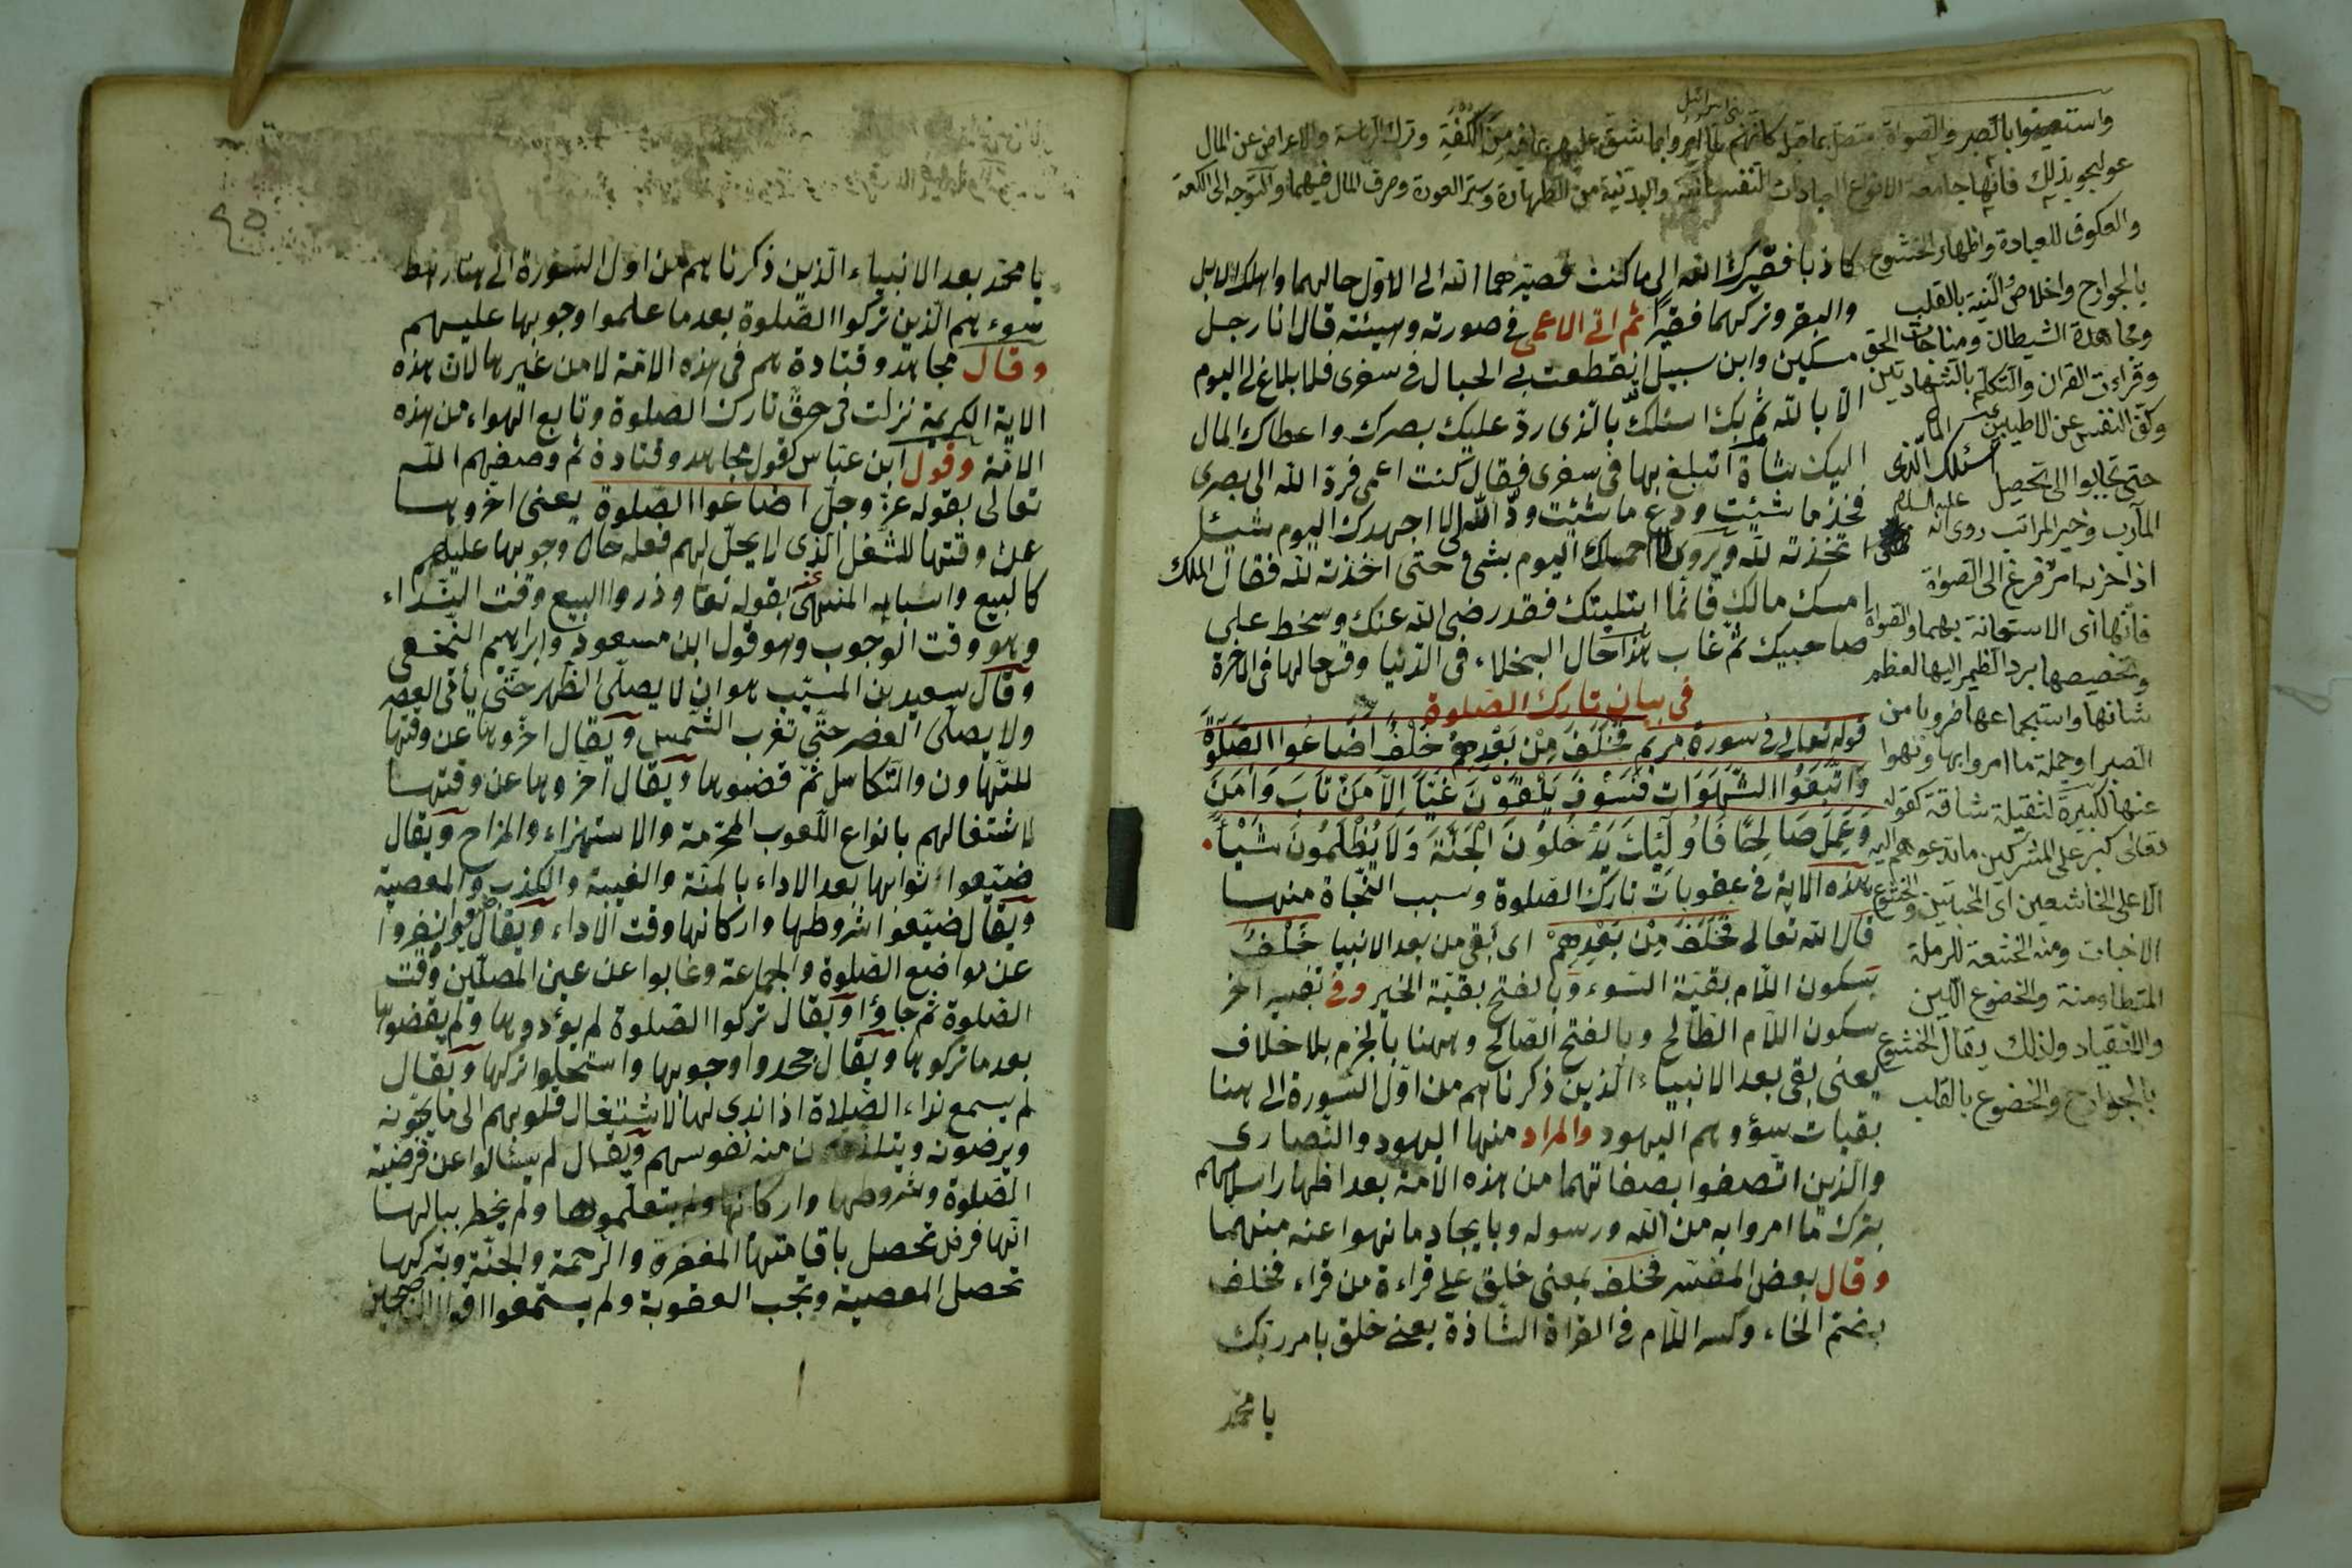 واستعينوا بالصبر والصلوة متصل بما قبل كانهم لما امروا بما شق عليهم لما فيه من الكلفة وترك الرياسة والاعراض عن المال
عولجوا بذلك فانها جامعة لانواع العبادات النفسانية والبدنية من الطهارة وستر العورة وصرف المال فيهما والتوجه الى الكعبة
والعكوف للعبادة واظهار الخشوع
بالجوارح واخلاص النية بالقلب
ومجاهدة الشيطان ومناجات الحق
وقراءت القران والتكلم بالشهادتين
وكف النفس عن الاطيبين
حتى تجابوا الى تحصيل
المآرب وخير المراتب روى انه عليه السلام
اذا حزبه امر فزع الى الصلوة
فانها اى الاستعانة بهما والصلوة
وتخصيصها برد الضمير اليها لعظم
شانها واستجماعها ضروبا من
الصبر او جملة ما امروا بها ونهوا
عنها لكبيرة لثقيلة شاقة كقوله
تعالى كبر على المشركين ما تدعوهم اليه
الا على الخاشعين اى المخبتين والخشوع
الاخبات ومنه الخشعة للرملة
المتطامنة والخضوع اللين
والانقياد ولذلك يقال الخشوع
بالجوارح والخضوع بالقلب
كاذبا فصيرك الله الى ما كنت فصيرهما الله الى الاول حالهما واهلك الابل
والبقر وتركهما فقيرا ثم اتى الاعمى فى صورته وهيئته قال انا رجل
مسكين وابن سبيل انقطعت بى الحبال فى سفرى فلا بلاغ لى اليوم
الا بالله ثم بك اسئلك بالذى رد عليك بصرك واعطاك المال
اليك شاة اتبلغ بها فى سفرى فقال كنت اعمى فرد الله الى بصرى
فخذ ما شئت ودع ما شئت والله لا اجهدك اليوم شيئا
اتخذته لله ويروى لا احمدك اليوم بشئ حتى اخذته لله فقال الملك
امسك مالك فانما ابتليتك فقد رضى الله عنك وسخط على
صاحبيك ثم غاب هذا حال البخلاء فى الدنيا وقس حالها فى الاخرة
فى بيان تارك الصلوة
قوله تعالى فى سورة مريم فَخَلَفَ مِنْ بَعْدِهِمْ خَلْفٌ اَضَاعُوا الصَّلٰوةَ
وَاتَّبَعُوا الشَّهَوَاتِ فَسَوْفَ يَلْقَوْنَ غَيًّا اِلَّا مَنْ تَابَ وَاٰمَنَ
وَعَمِلَ صَالِحًا فَاُولٰئِكَ يَدْخُلُونَ الْجَنَّةَ وَلَا يُظْلَمُونَ شَيْئًا
هذه الاية فى عقوبات تارك الصلوة وسبب النجاة منها
قال الله تعالى فَخَلَفَ مِنْ بَعْدِهِمْ اى بقى من بعد الانبيا خَلْفٌ
بسكون اللام بقية السوء وبالفتح بقية الخير وفى تفسير اخر
بسكون اللام الطالح وبالفتح الصالح وههنا بالجزم بلا خلاف
يعنى بقى بعد الانبياء الذين ذكرناهم من اول السورة الى هنا
بقيات سوء وهم اليهود والمراد منها اليهود والنصارى
والذين اتصفوا بصفاتهما من هذه الامة بعد اظهار اسلامهم
بترك ما امروا به من الله ورسوله وبايجاد ما نهوا عنه منهما
وقال بعض المفسر فخلف بمعنى خلق على قراءة من قراء فخلف
بضم الخاء وكسر اللام فى القراة الشاذة يعنى خلق بامر ربك
يا محمد
يا محمد بعد الانبياء الذين ذكرناهم من اول السورة الى هنا رهط
سوء هم الذين تركوا الصلوة بعد ما علموا وجوبها عليهم
وقال مجاهد وقتادة هم فى هذه الامة لا من غيرها لان هذه
الاية الكريمة نزلت فى حق تارك الصلوة وتابع الهواء من هذه
الامة وقول ابن عباس كقول مجاهد وقتادة ثم وصفهم الله
تعالى بقوله عز وجل اضاعوا الصلوة يعنى اخروها
عن وقتها للشغل الذى لا يحل لهم فعله حال وجوبها عليهم
كالبيع واسبابه المنهى عنه بقوله تعا وذروا البيع وقت النداء
وهو وقت الوجوب وهو قول ابن مسعود وابراهيم النخعى
وقال سعيد بن المسيب هو ان لا يصلى الظهر حتى يأتى العصر
ولا يصلى العصر حتى تغرب الشمس ويقال اخروها عن وقتها
للتهاون والتكاسل ثم قضوها ويقال اخروها عن وقتها
لاشتغالهم بانواع اللعوب المحرمة والاستهزاء والمزاح ويقال
ضيعوا ثوابها بعد الاداء بالمنة والغيبة والكذب والمعصية
ويقال ضيعوا شروطها واركانها وقت الاداء ويقال
عن مواضع الصلوة والجماعة وغابوا عن عين المصلين وقت
الصلوة ثم جاؤا ويقال تركوا الصلوة لم يؤدوها ولم يقضوها
بعد ما تركوها ويقال جحدوا وجوبها واستحلوا تركها ويقال
لم يسمع نداء الصلاة اذا ندى لها لاشتغال قلوبهم الى ما يحبونه
ويرضونه منه نفوسهم ويقال لم يسئالوا عن فرضية
الصلوة وشروطها واركانها ولم يتعلموها ولم يخطر ببالها
انها فرض تحصل باقامتها المغفرة والرحمة والجنة وبتركها
تحصل المعصية وتجب العقوبة ولم يستمعوا اقوال